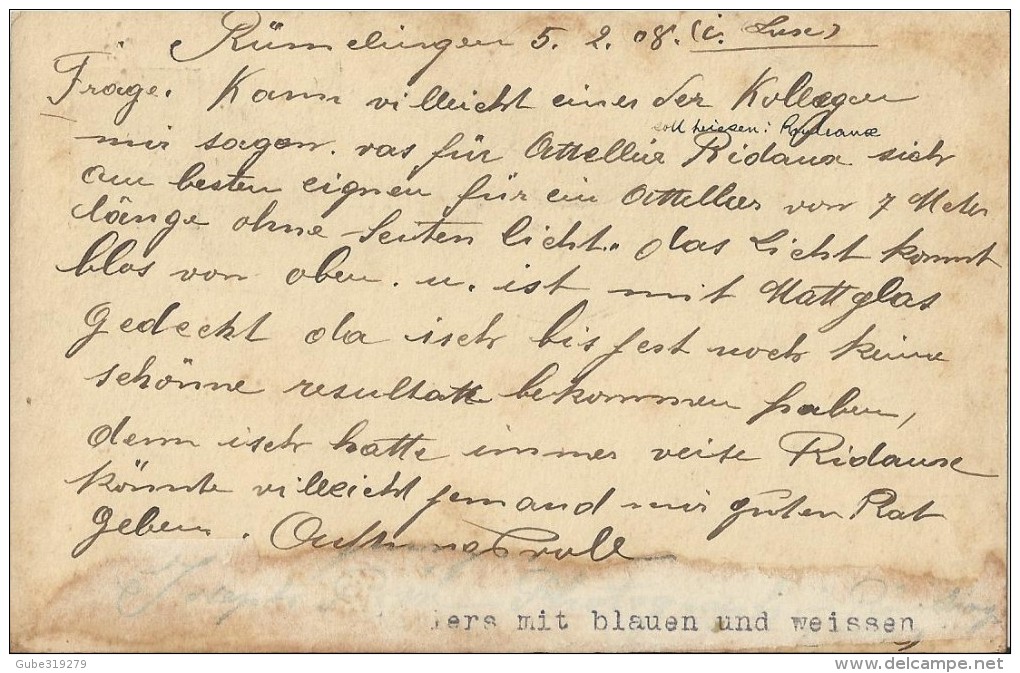 Rümelingen 5. 2. 08. (i. Lux)
Frage. Kann villeicht einer der Kollegen
soll heissen: Rideaux
mir sagen. vas für Attellier Ridaux sich
am besten eignen für ein Attellier von 7 Meter
länge ohne seiten licht.. das Licht kommt
blos von oben. u. ist mit Mattglas
gedeckt da isch bis jest noch keine
schönne resultate bekommen haben,
denn isch hatte immer veise Ridaux
könnte villeicht jemand mir guten Rat
geben. Achtungsvoll
Joseph
lers mit blauen und weissen
Gube319279
delcampe.net